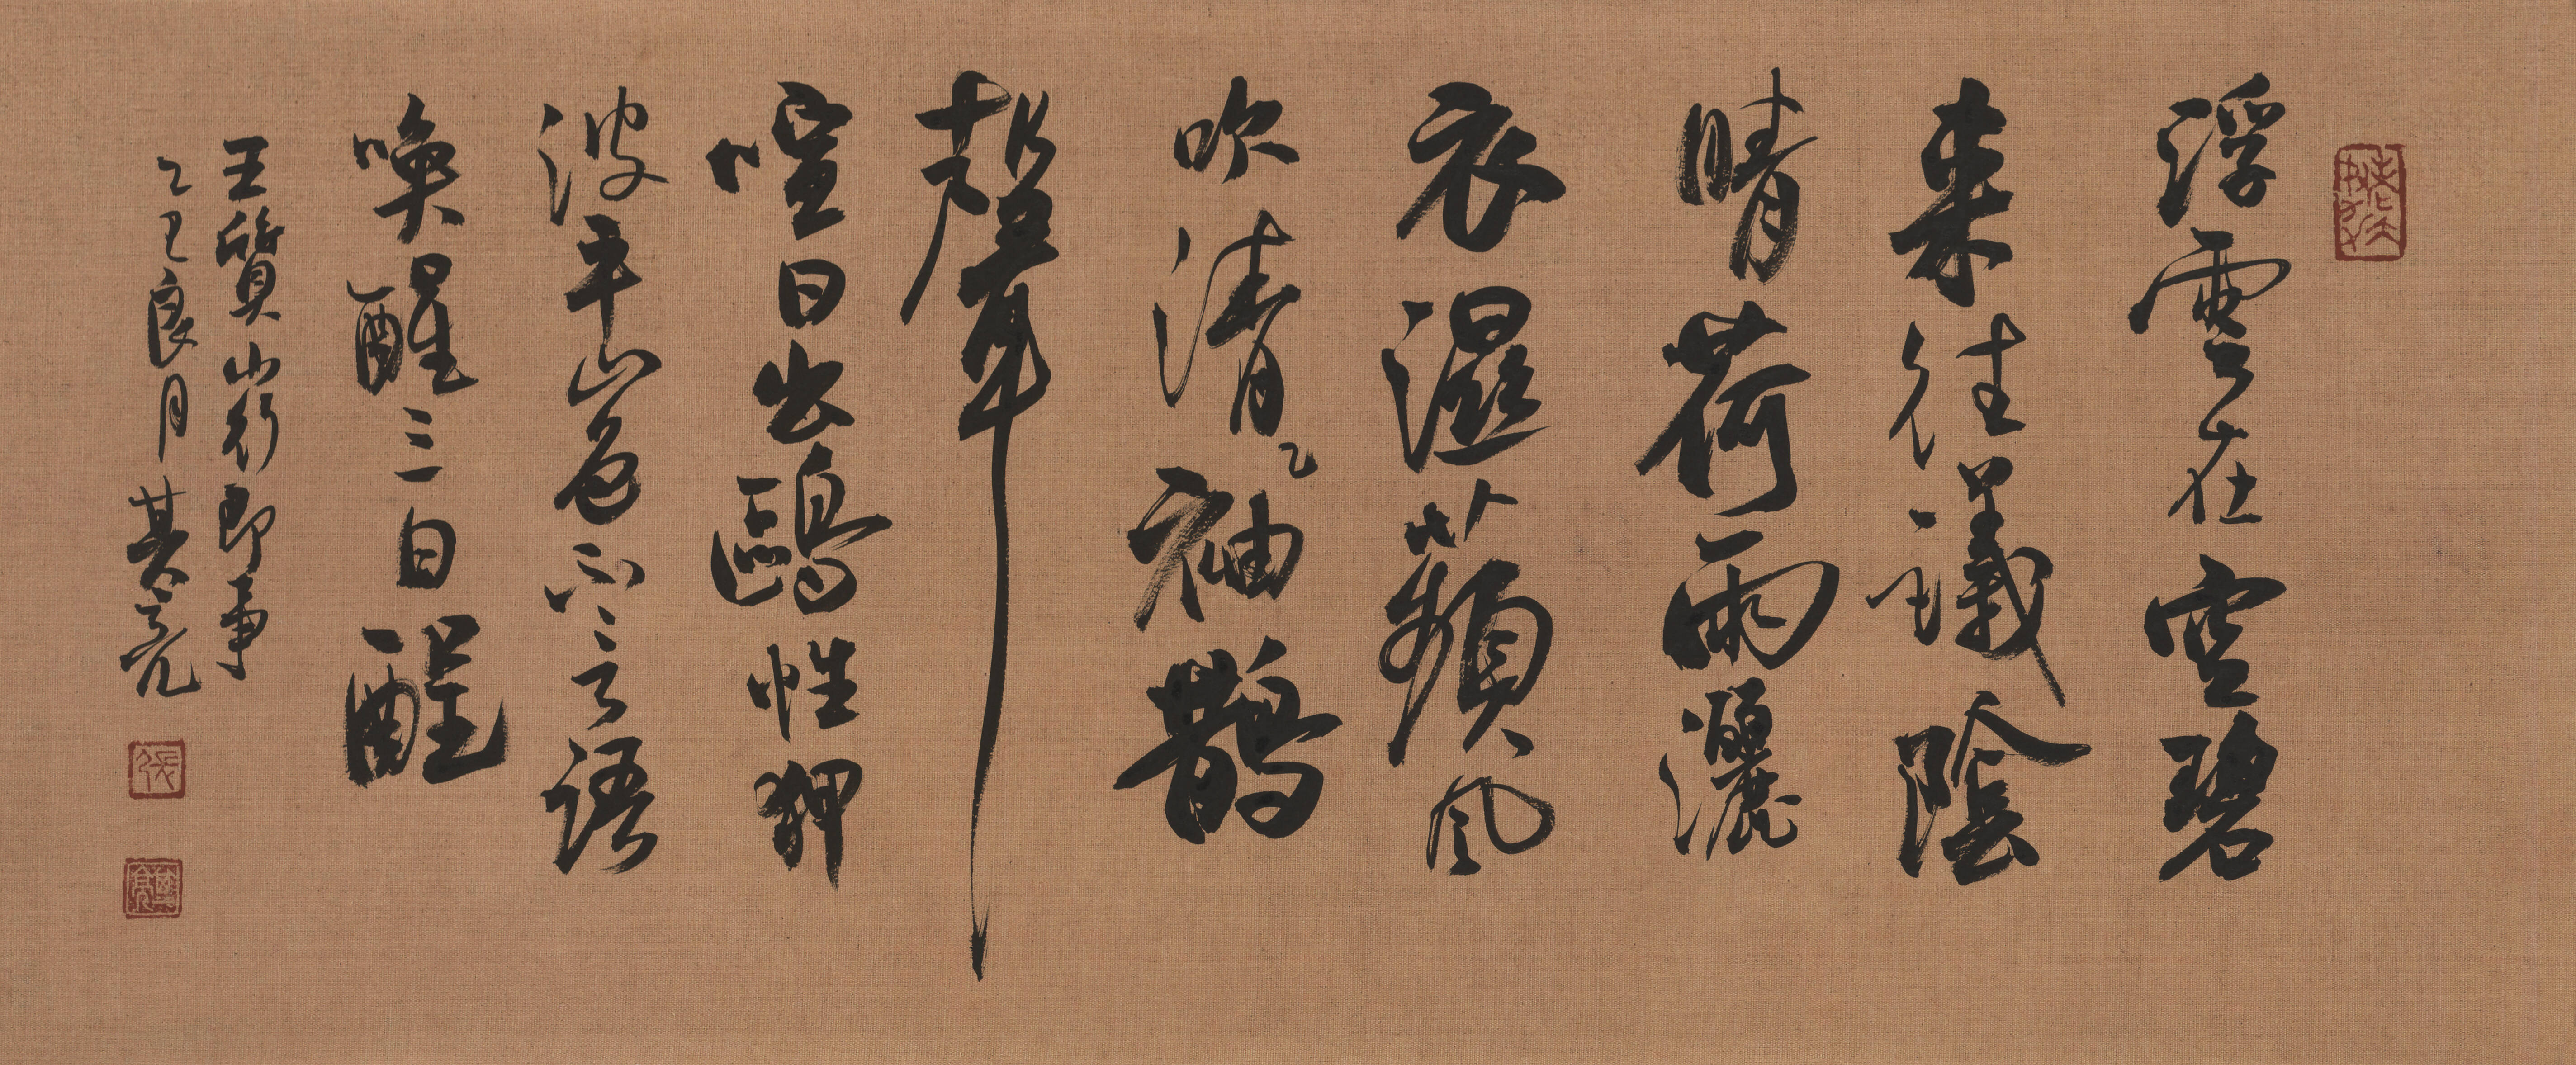 浮雲在空碧
来往議陰
晴荷雨灑
衣濕蘋風
吹清袖鵲
聲
喧日出鷗性狎
波平山色不言語
喚醒三日酲
王質山行即事
乙巳良月其亮